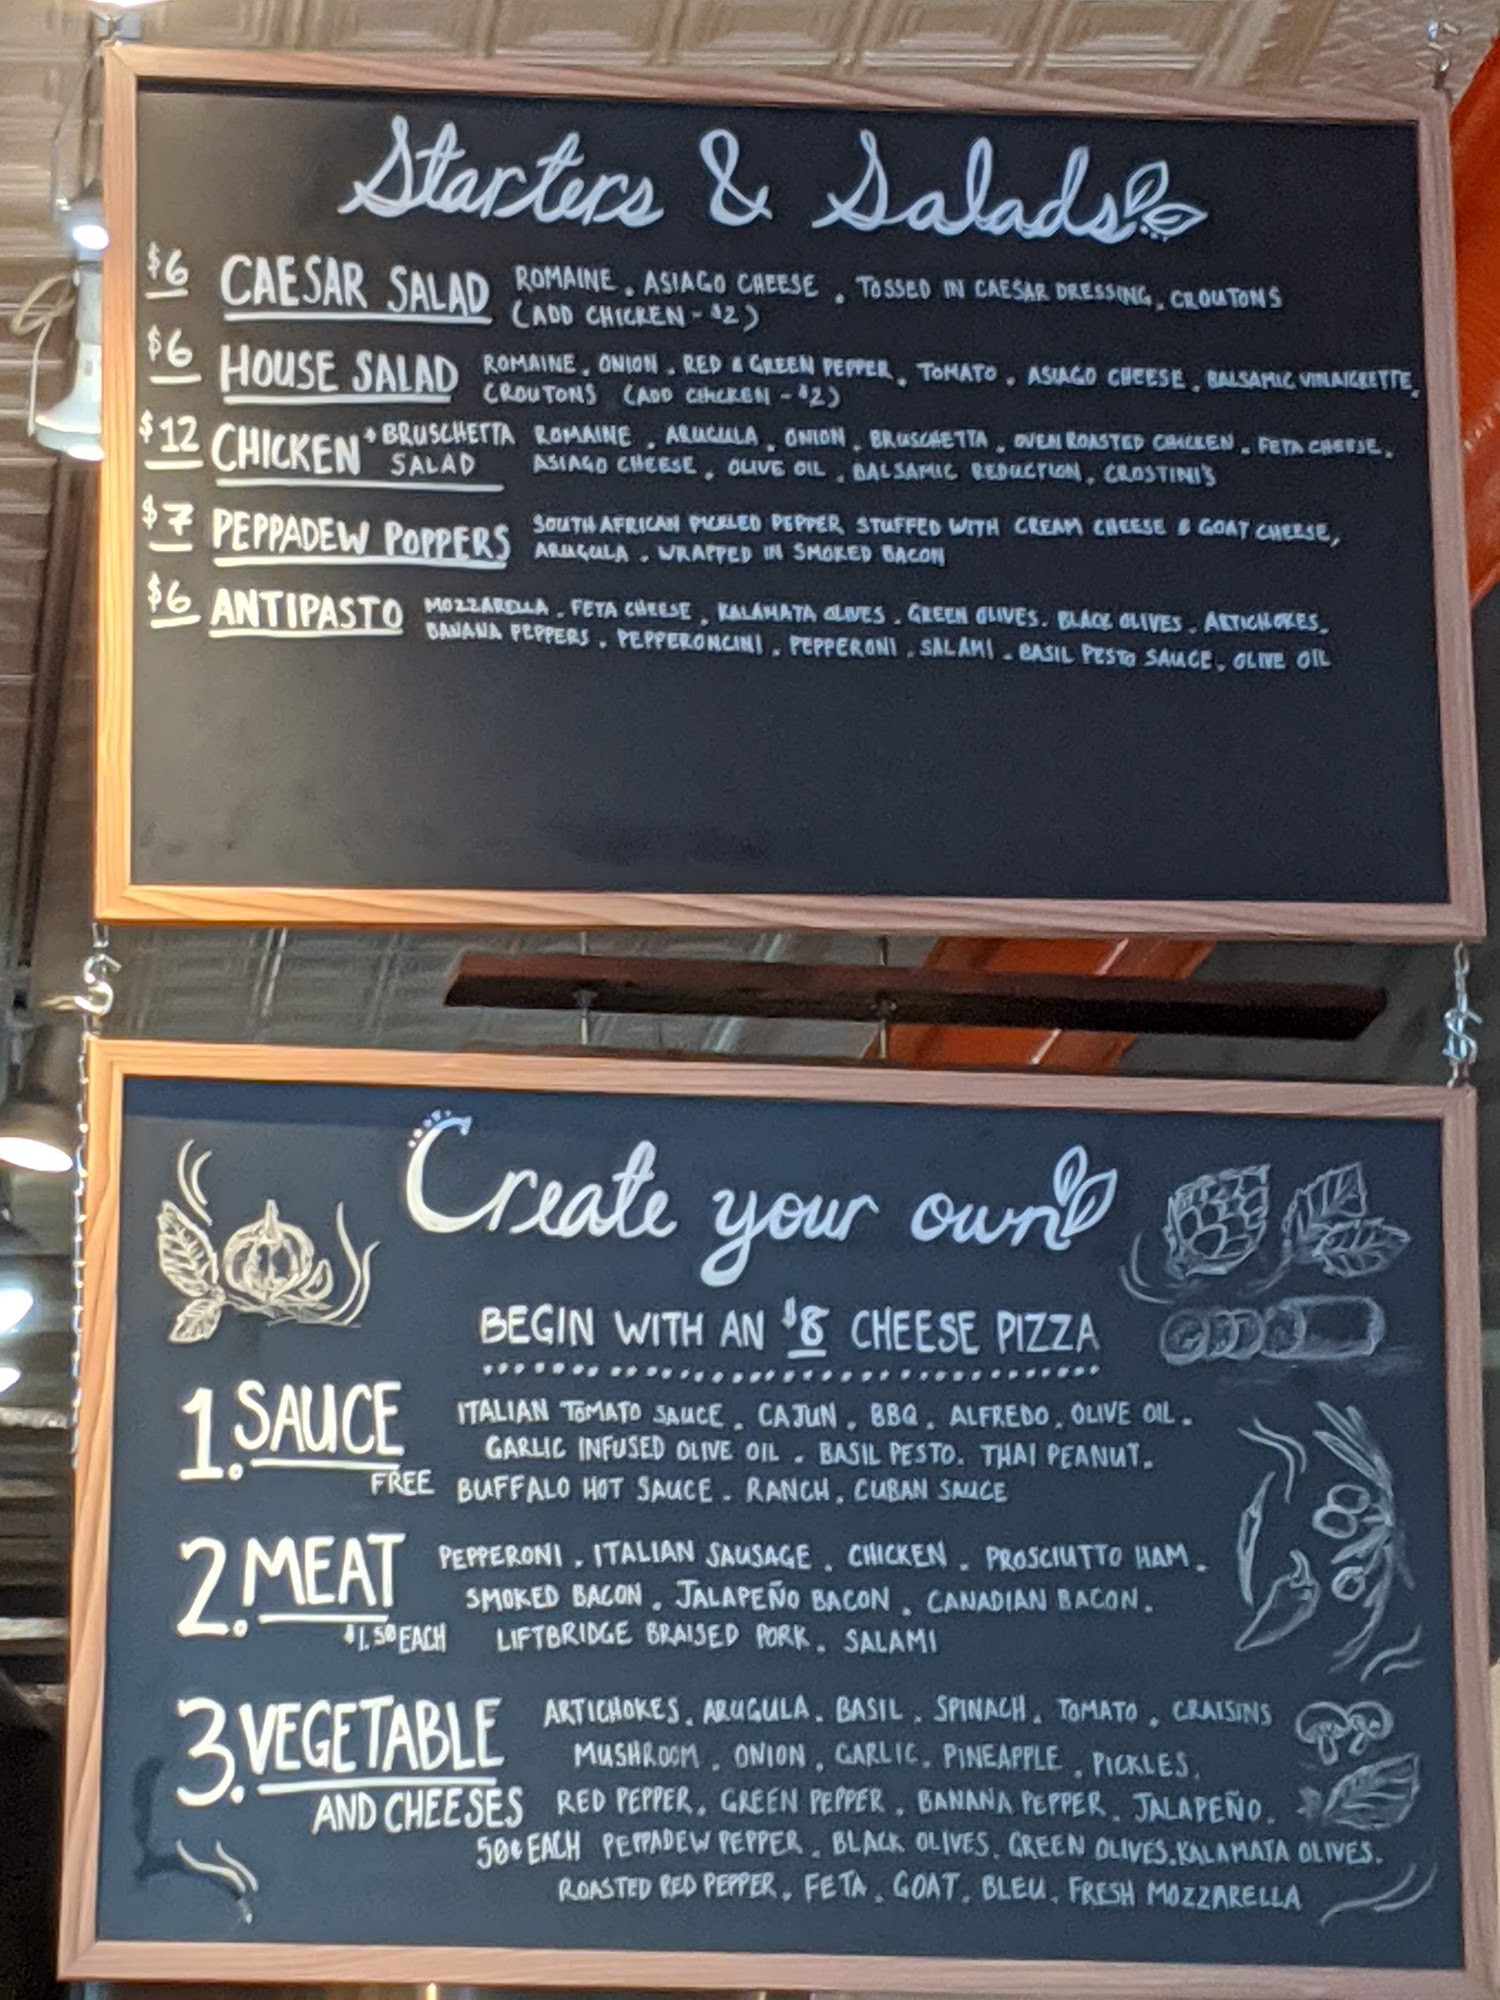 Starters & Salads
$6 CAESAR SALAD ROMAINE . ASIAGO CHEESE . TOSSED IN CAESAR DRESSING . CROUTONS
(ADD CHICKEN - $2)
$6 HOUSE SALAD ROMAINE . ONION . RED & GREEN PEPPER . TOMATO . ASIAGO CHEESE . BALSAMIC VINAIGRETTE .
CROUTONS (ADD CHICKEN - $2)
$12 CHICKEN & BRUSCHETTA SALAD ROMAINE . ARUGULA . ONION . BRUSCHETTA . OVEN ROASTED CHICKEN . FETA CHEESE .
ASIAGO CHEESE . OLIVE OIL . BALSAMIC REDUCTION . CROSTINI'S
$7 PEPPADEW POPPERS SOUTH AFRICAN PICKLED PEPPER STUFFED WITH CREAM CHEESE & GOAT CHEESE,
ARUGULA . WRAPPED IN SMOKED BACON
$6 ANTIPASTO MOZZARELLA . FETA CHEESE . KALAMATA OLIVES . GREEN OLIVES . BLACK OLIVES . ARTICHOKES .
BANANA PEPPERS . PEPPERONCINI . PEPPERONI . SALAMI . BASIL PESTO SAUCE . OLIVE OIL
Create your own
BEGIN WITH AN $8 CHEESE PIZZA
1. SAUCE ITALIAN TOMATO SAUCE . CAJUN . BBQ . ALFREDO . OLIVE OIL .
GARLIC INFUSED OLIVE OIL . BASIL PESTO . THAI PEANUT .
FREE BUFFALO HOT SAUCE . RANCH . CUBAN SAUCE
2. MEAT PEPPERONI . ITALIAN SAUSAGE . CHICKEN . PROSCIUTTO HAM .
SMOKED BACON . JALAPEÑO BACON . CANADIAN BACON .
$1.50 EACH LIFTBRIDGE BRAISED PORK . SALAMI
3. VEGETABLE ARTICHOKES . ARUGULA . BASIL . SPINACH . TOMATO . CRAISINS
MUSHROOM . ONION . GARLIC . PINEAPPLE . PICKLES .
AND CHEESES RED PEPPER . GREEN PEPPER . BANANA PEPPER . JALAPEÑO .
50¢ EACH PEPPADEW PEPPER . BLACK OLIVES . GREEN OLIVES . KALAMATA OLIVES .
ROASTED RED PEPPER . FETA . GOAT . BLEU . FRESH MOZZARELLA